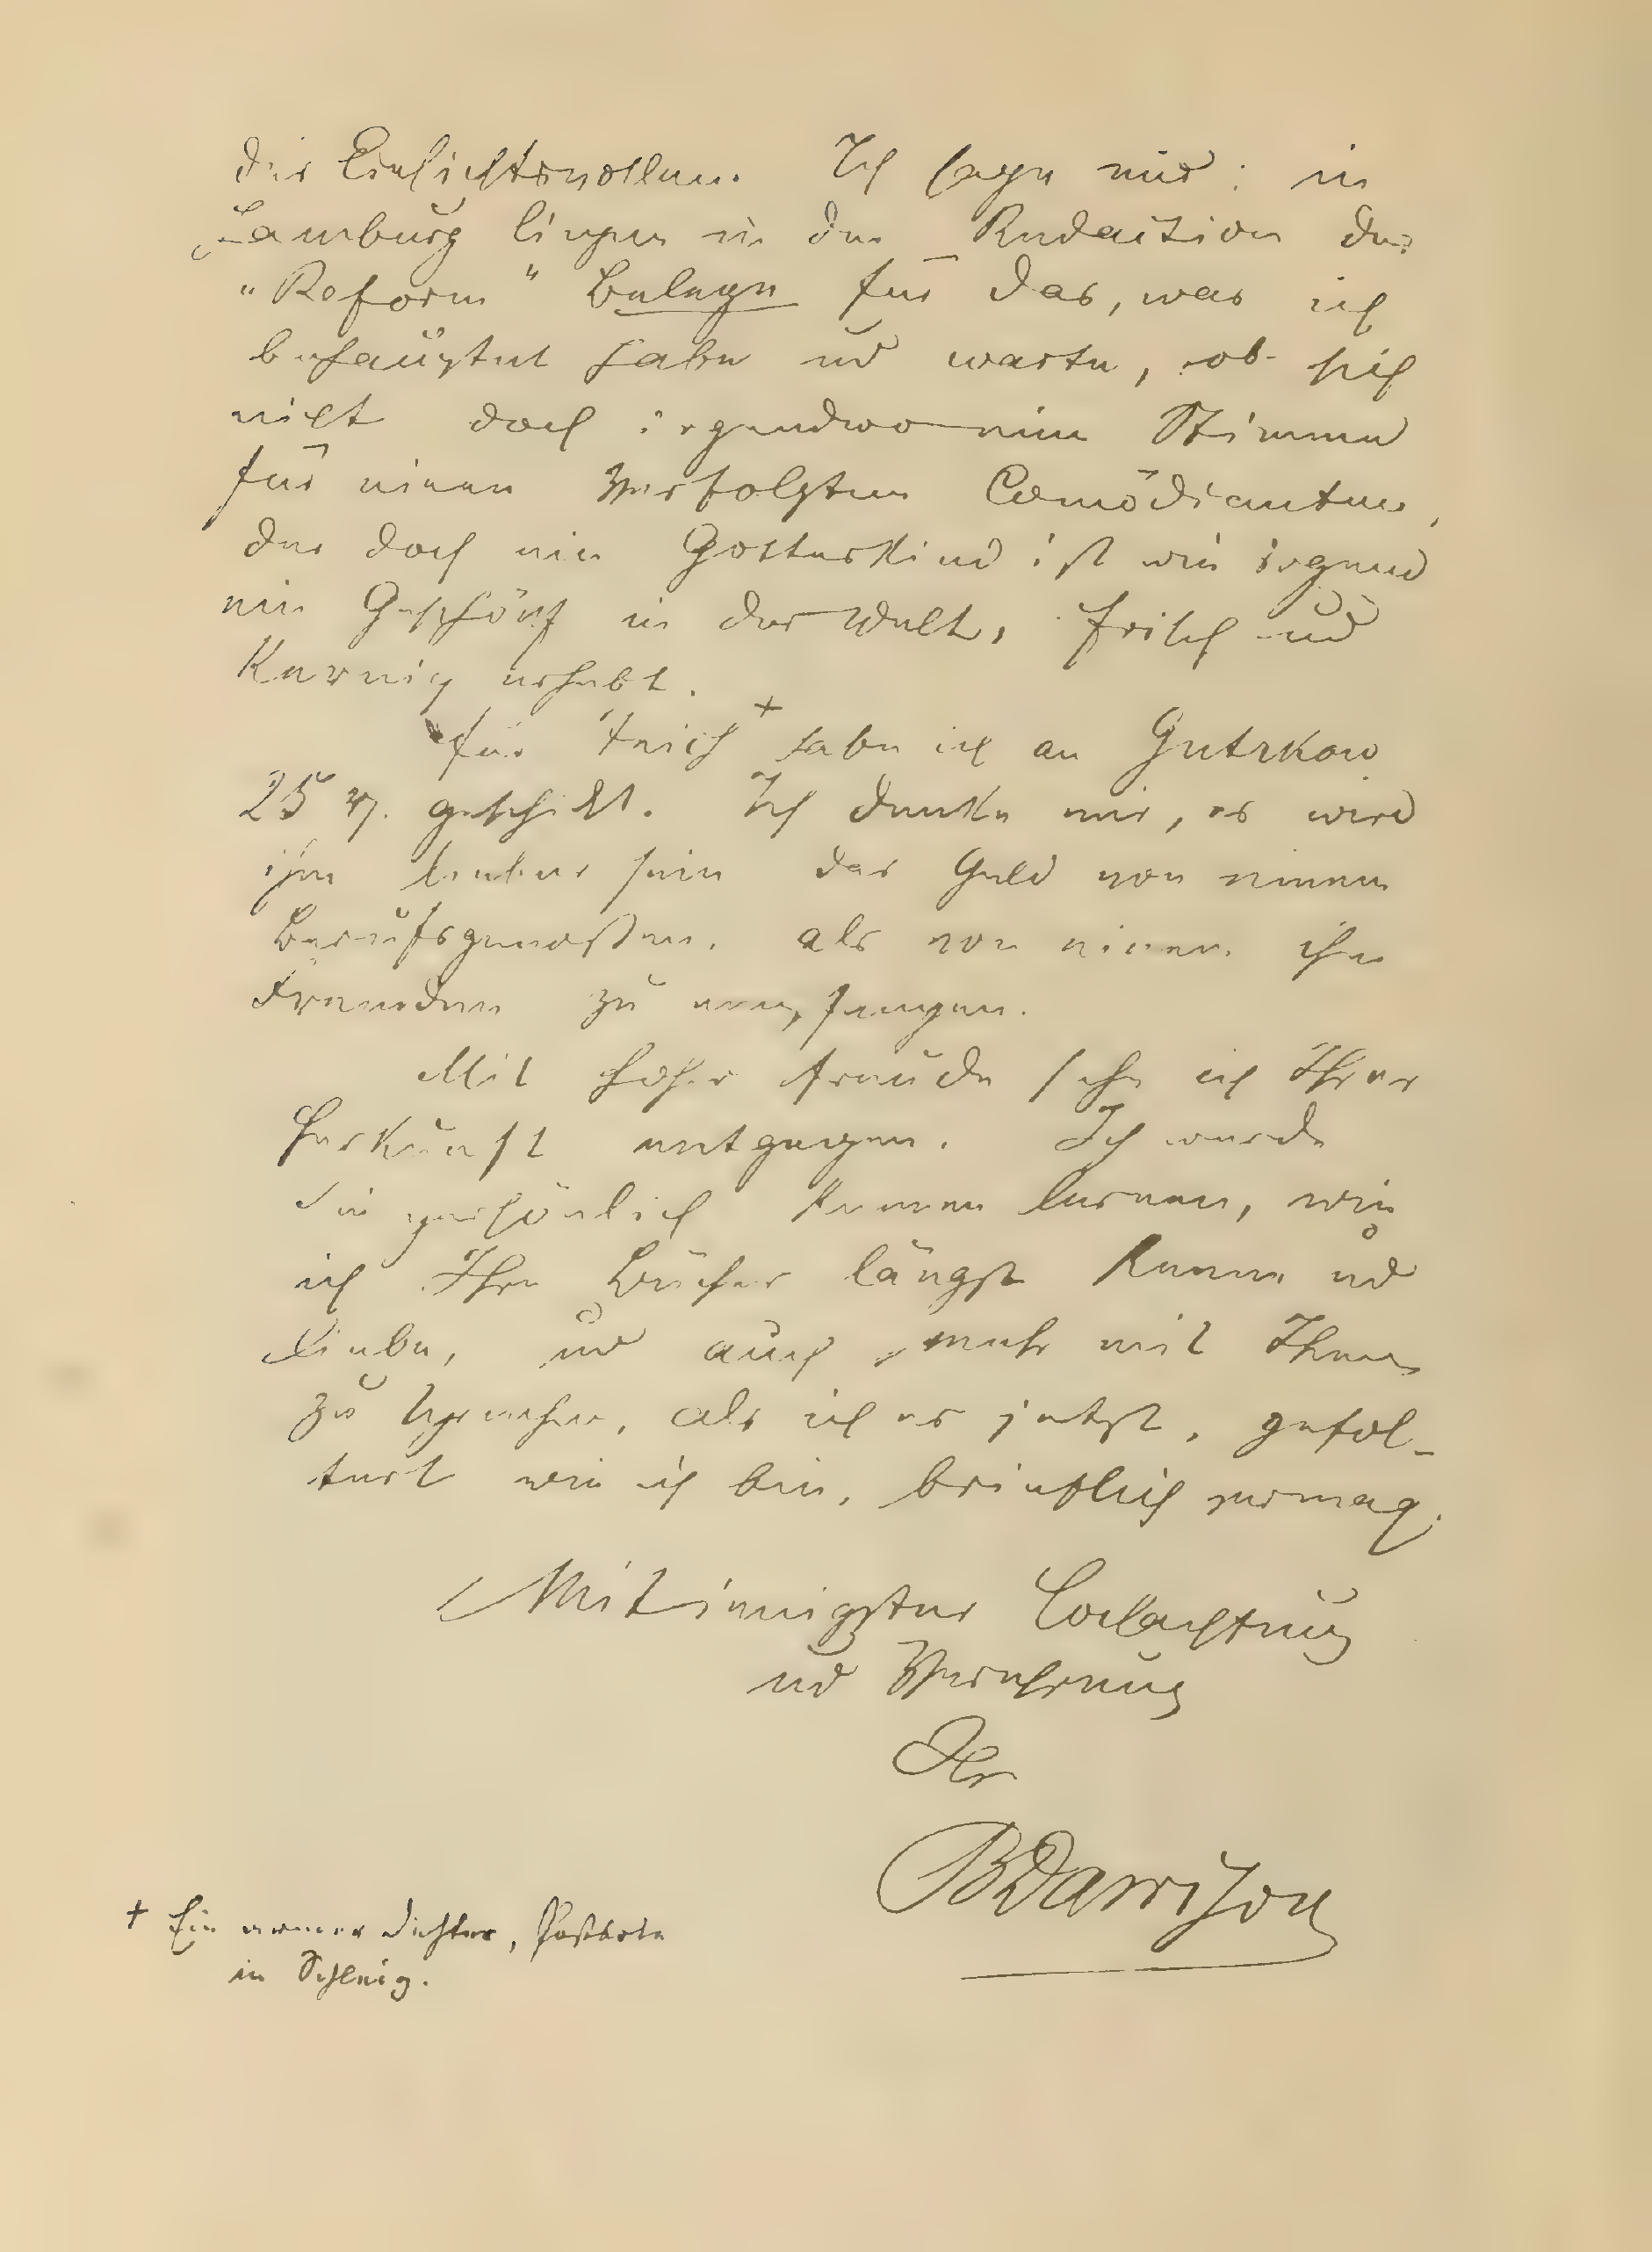 der Einsichtsvollen. Ich sage mir: in
Hamburg liegen in der Redaction der
"Reform" Belege für das, was ich
behauptet habe und warte, ob sich
nicht doch irgendwo eine Stimme
für einen verfolgten Comödianten,
der doch ein Gotteskind ist wie irgend
ein Geschöpf in der Welt, frisch und
kernig erhebt.
Für + habe ich an Gutzkow
25 geschikt. Ich denke mir, es wird
ihm lieber sein das Geld von einem
Berufsgenossen, als von einem ihm
Fremden zu empfangen.
Mit hoher Freude sehe ich Ihrer
Herkunft entgegen. Ich werde
Sie persönlich kennen lernen, wie
ich Ihre Bücher längst kenne und
liebe, und auch mehr mit Ihnen
zu sprechen, als ich es jetzt, gefol-
tert wie ich bin, brieflich vermag.
Mit innigster Hochachtung
und Verehrung
Ihr
BDawison
+ Ein armer Dichter, Postbote
in Schleiz.